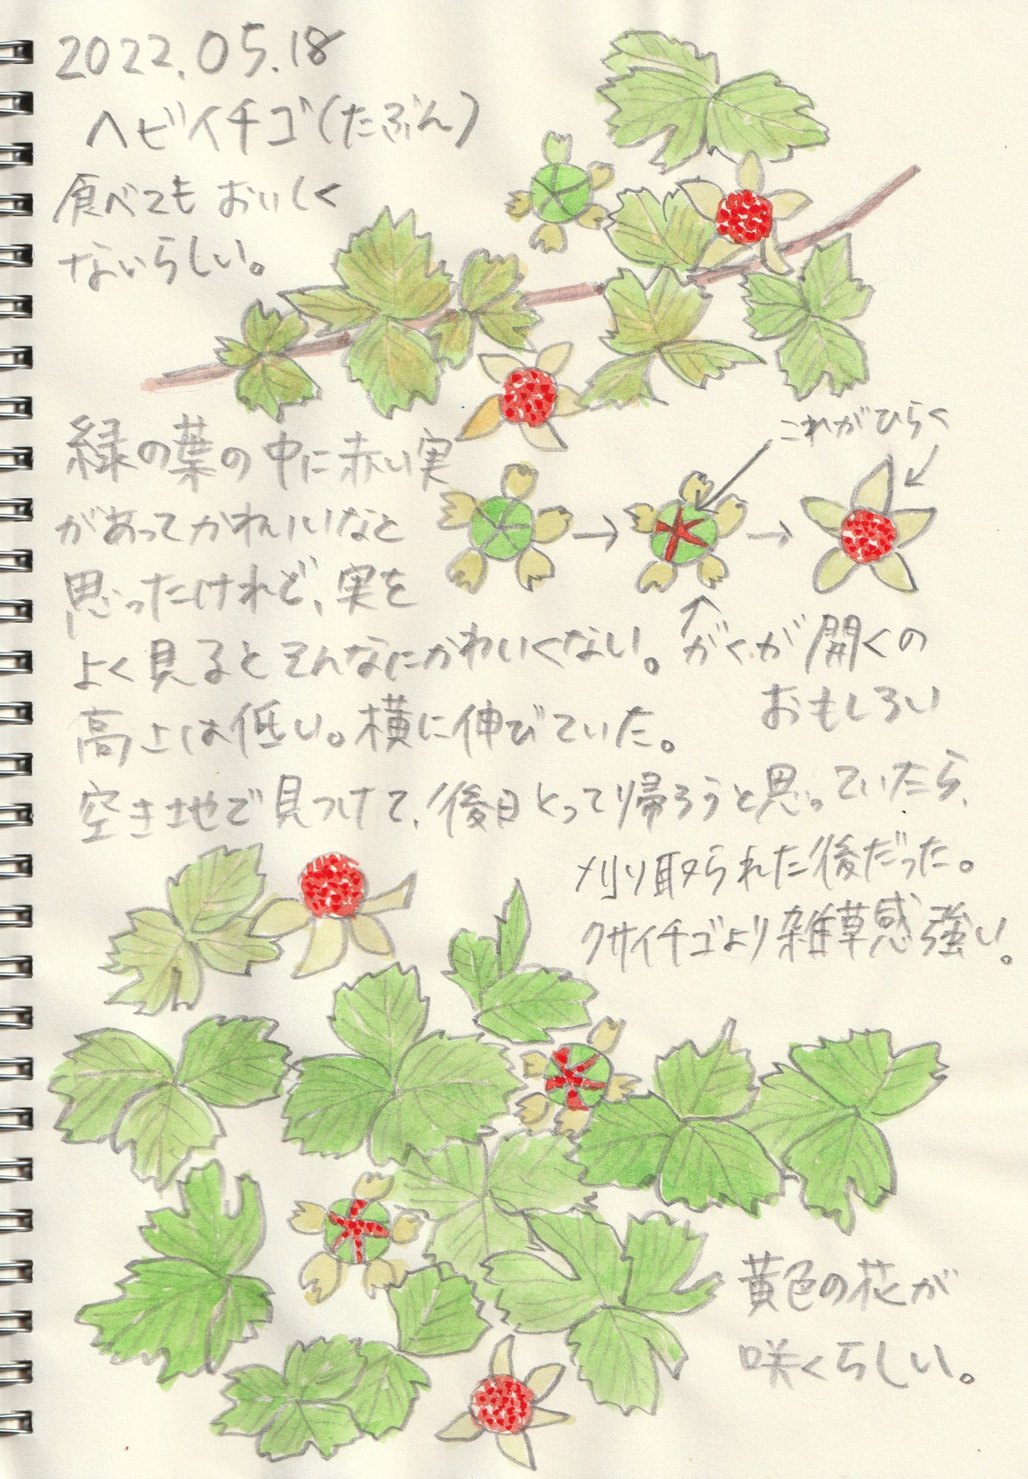 2022.05.18
ヘビイチゴ(たぶん)
食べてもおいしく
ないらしい。
緑の葉の中に赤い実
があってかわいいなと
思ったけれど、実を
よく見るとそんなにかわいくない。
高さは低い。横に伸びていた。
これがひらく
がくが開くの
おもしろい
空き地で見つけて、後日とって帰ろうと思っていたら、
刈り取られた後だった。
クサイチゴより雑草感強い。
黄色の花が
咲くらしい。